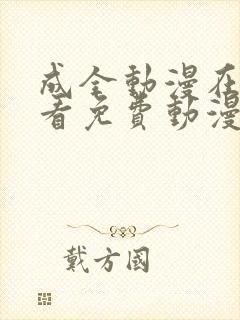 成全動漫在
看免費動漫
戴方國